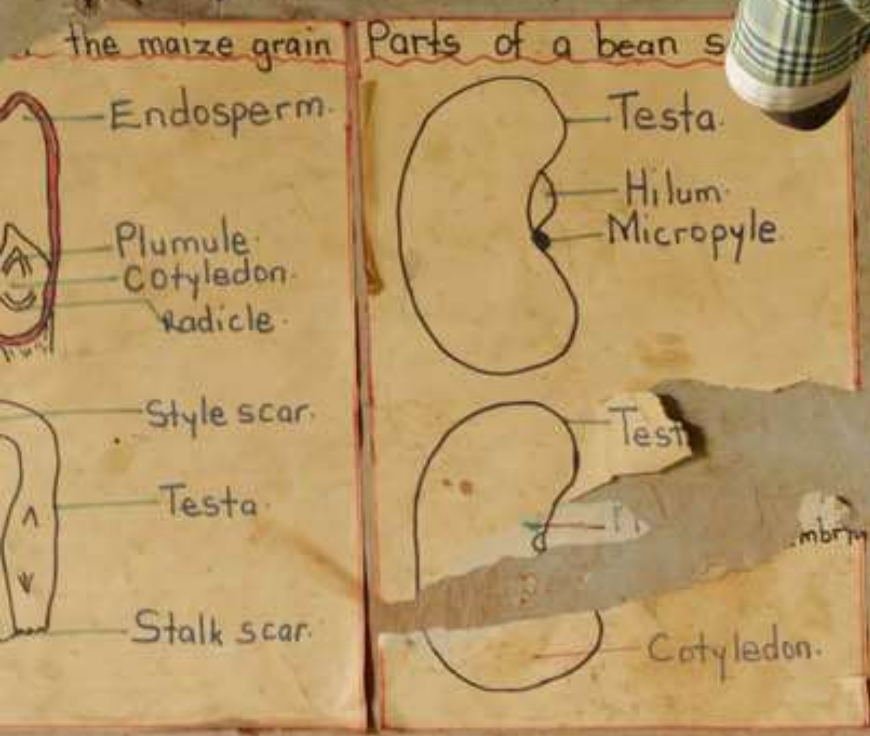 the maize grain
Endosperm.
Plumule.
Cotyledon.
Radicle.
Style scar.
Testa.
Stalk scar.
Parts of a bean
Testa.
Hilum.
Micropyle.
Test
mbry
Cotyledon.